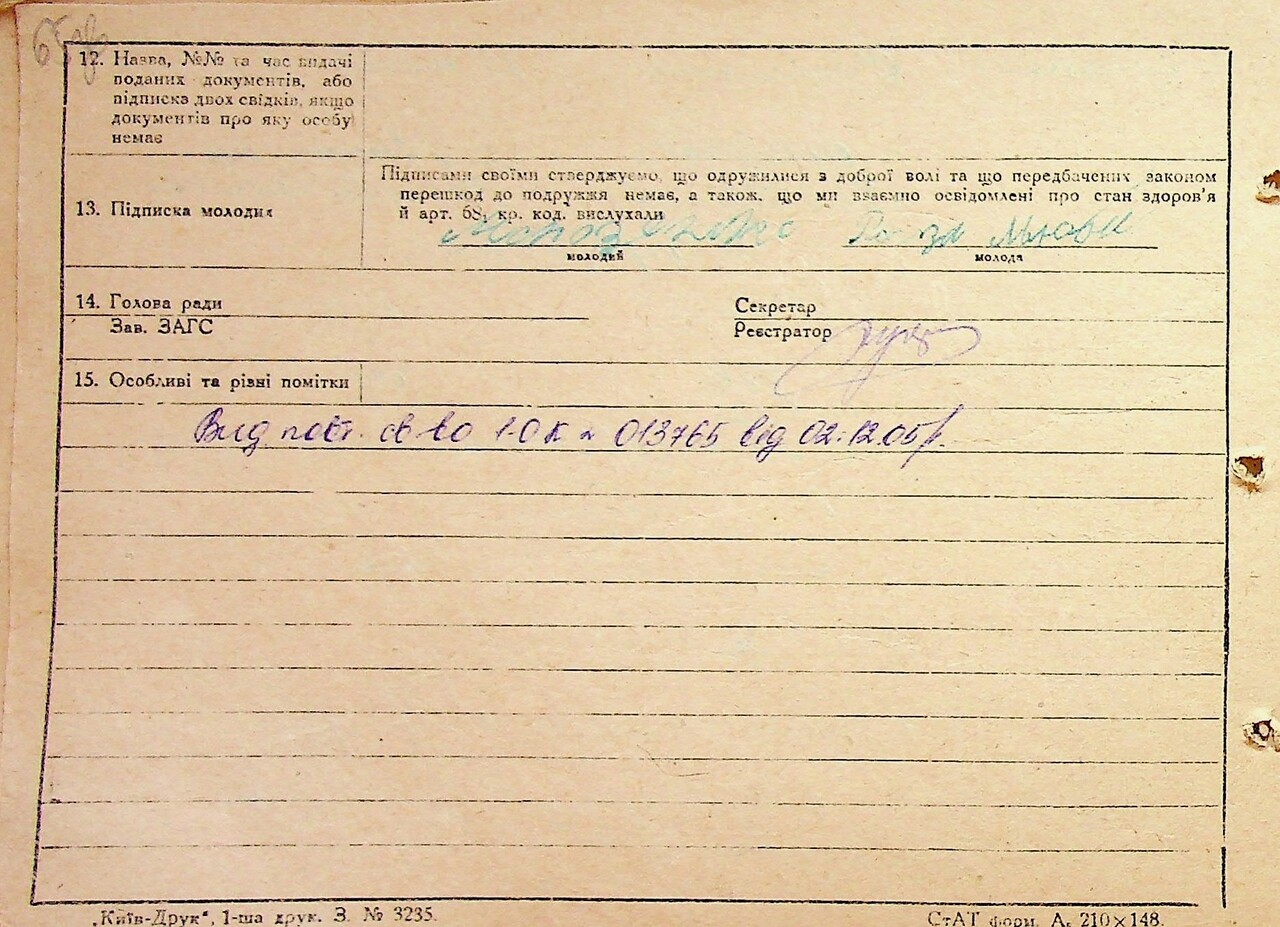 12. Назва, №№ та час видачі
поданих документів, або
підписка двох свідків, якщо
документів про яку особу
немає
Підписами своїми стверджуємо, що одружилися з доброї волі та що передбачених законом
перешкод до подружжя немає, а також, що ми взаємно освідомлені про стан здоров'я
13. Підписка молодих
й арт. 68, кр. код. вислухали
Мороз
молодий
молода
14. Голова ради
Секретар
Зав. ЗАГС
Реєстратор
15. Особливі та різні помітки
Вид повт. св во 1-ОК № 013765 від 02.12.05р.
„Київ-Друк“, 1-ша друк. З. № 3235.
СтАТ форм. А₅ 210×148.